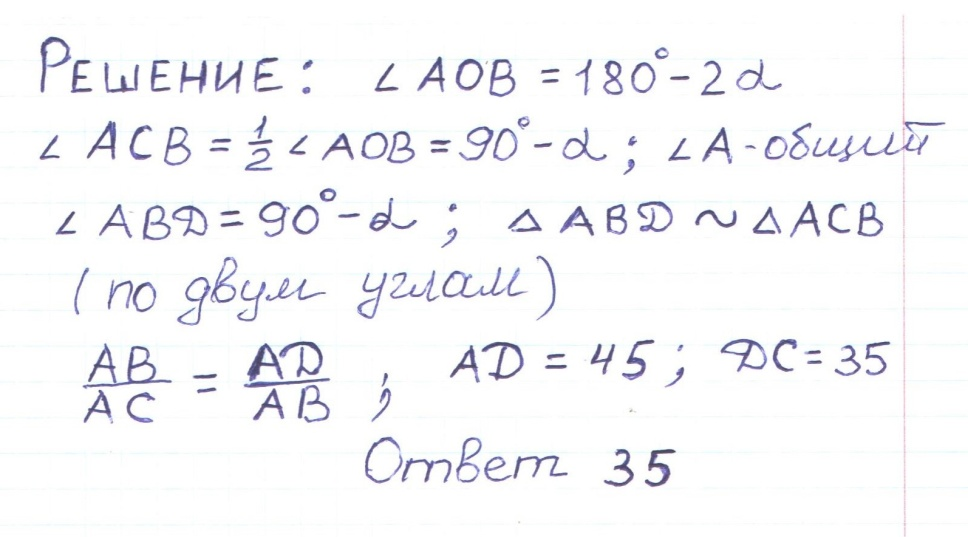 РЕШЕНИЕ: ∠ AOB = 180° - 2α
∠ ACB = 1/2 ∠ AOB = 90° - α ; ∠A - общий
∠ ABD = 90° - α ; △ ABD ~ △ ACB
(по двум углам)
AB/AC = AD/AB ; AD = 45 ; DC = 35
Ответ 35